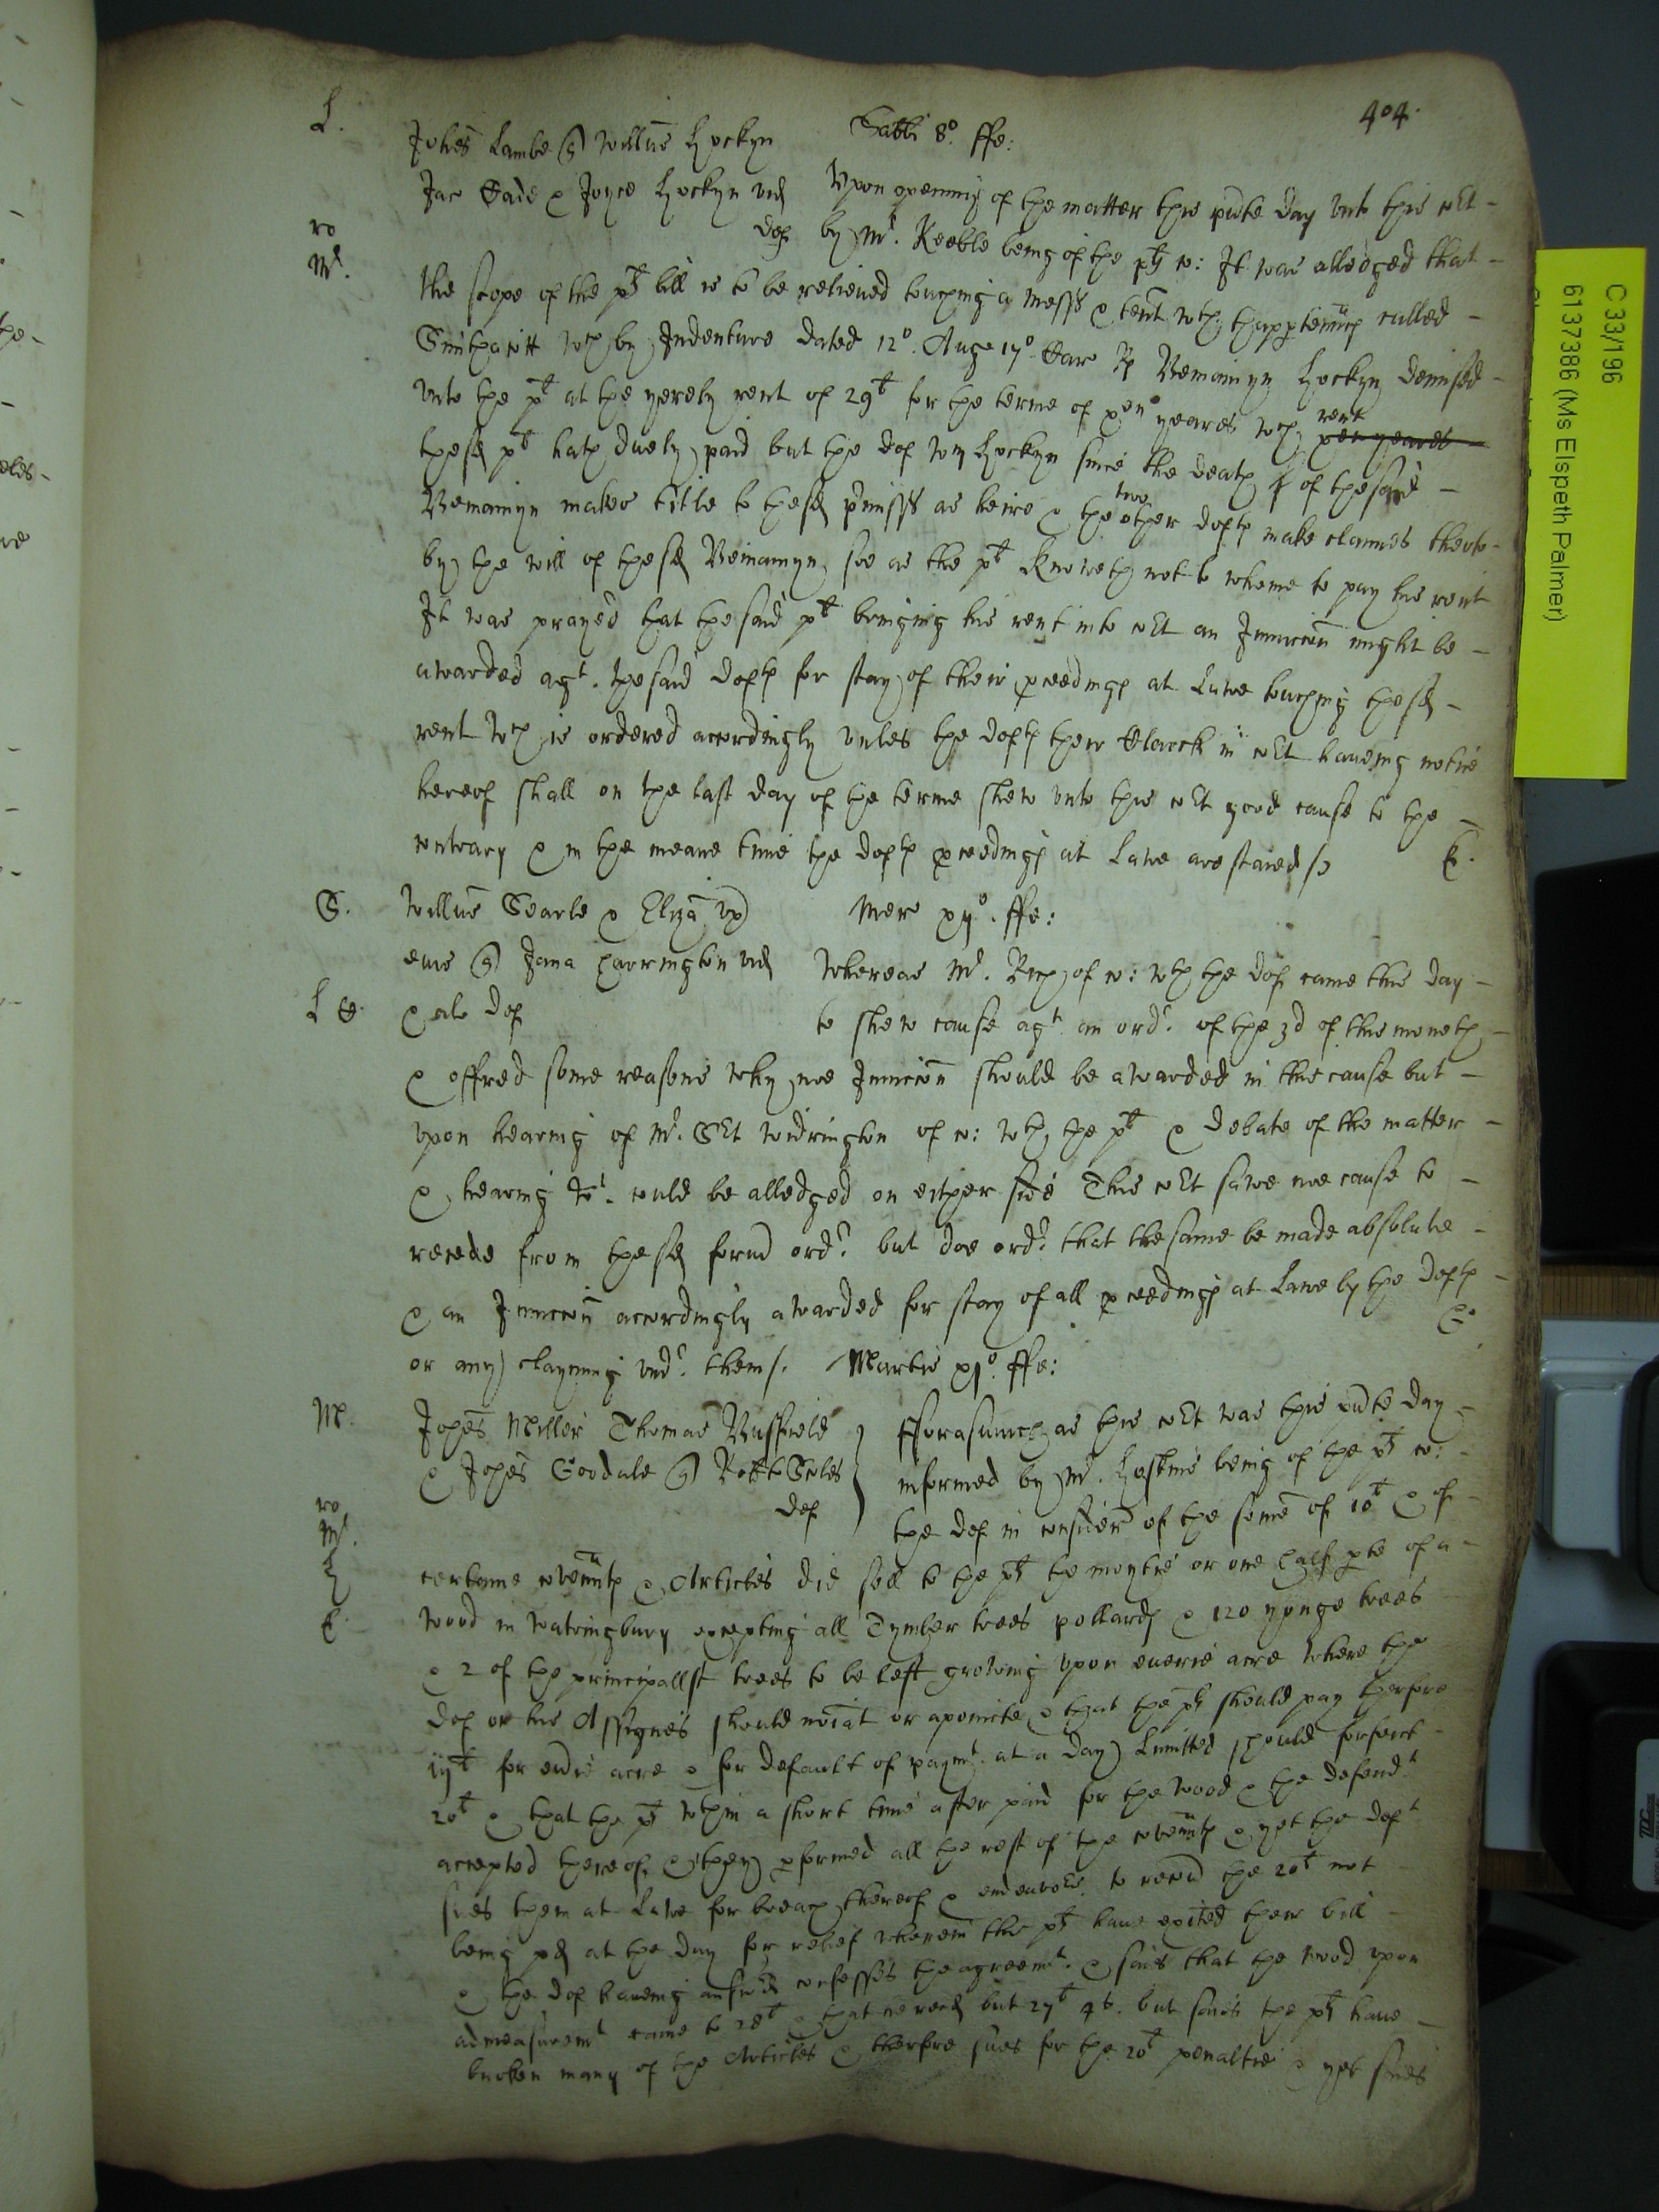 404.
L. Johes Lambe @ Willus Lockyn
Sabti 8°. ffe:
Jac Cade & Joyce Lockyn vid
def
Vpon opening of the matter this pnte day vnto this cort
by Mr. Keeble being of the plts co: It was alledged that
ro
Mr.
the scope of the plts bill is to be relieved touching a mess & tent wth thappertennc called
wch by Indenture dated 12°. Aug 17°. Car R Beniamyn Lockyn demised
vnto the plt at the yerely rent of 29l for the terme of yeares wch rent
thesd plt hath duely paid but the def Wm Lockyn since the death of thesaid
Beniamyn makes title to thesd pmisss as heire & the two other defts make claimes therto
by the will of thesd Beniamyn soe as the plt knoweth not to whome to pay his rent
It was prayed that thesaid plt bringing his rent into cort an Iniuncon might be
awarded agt. thesaid defts for stay of their pceedings at Lawe touching thesd
rent wch is ordered accordingly vnles the defts their Clarck in cort haveing notice
hereof shall on the last day of the terme shew vnto this cort good cause to the
contrary & in the meane time the defts pceedings at Lawe are staied /
S. Willus Searle & Eliza vx
Mer xij°. ffe:
eius @ Jana Carrington vid
& als def
Whereas Mr. Rich of co: wth the def came this day
L
to shew cause agt. an ordr. of the 3d of this moneth
& offred some reasons why noe Iniuncon should be awarded in this cause but
vpon hearing of Mr. Sert Widrington of co: wth the plt & debate of the matter
& hearing wt. could be alledged on either side This cort sawe noe cause to
recede from thesd formr ordr. but doe ordr. that the same be made absolute
& an Iniuncon accordingly awarded for stay of all pceedings at Lawe by the defts
or any clayming vndr. them /. Martis xj°. ffe:
M. Johes Miller Thomas Busfield
& Johes Goodale @ Robt Soles
def
fforasmuch as this cort was this pnte day
informed by Mr. Hoskins being of the plts co:
the def in consideron of the some of 10l & of
ro
Mr.
certaine covennts & Articles did sell to the plts the moytie or one half pte of a
wood in Watringbury excepting all Tymber trees pollards & 120 yonge trees
& 2 of the principallst trees to be left growing vpon euerie acre where the
def or his Assignes should noiat or apointe & that the plts should pay therfore
for euie acre & for default of paymt. at a day limitted should forfeit
20l & that the plts wthin a short time after paid for the wood & the defendt
accepted thereof & they pformed all the rest of the covennts & yet the deft
sues them at Lawe for breach thereof & endeavors to recou the 20l not
being pd at the day for relief wherein the plts haue exited their bill
& the def haveing answered confesses the agreemt. & saies that the wood vpon
admeasuremt came to 28l & that he recd but 27l 4s. but saies the plts haue
broken many of the Articles & therfore sues for the 20l penaltie & yet saies
C 33/196
6137386 (Ms Elspeth Palmer)